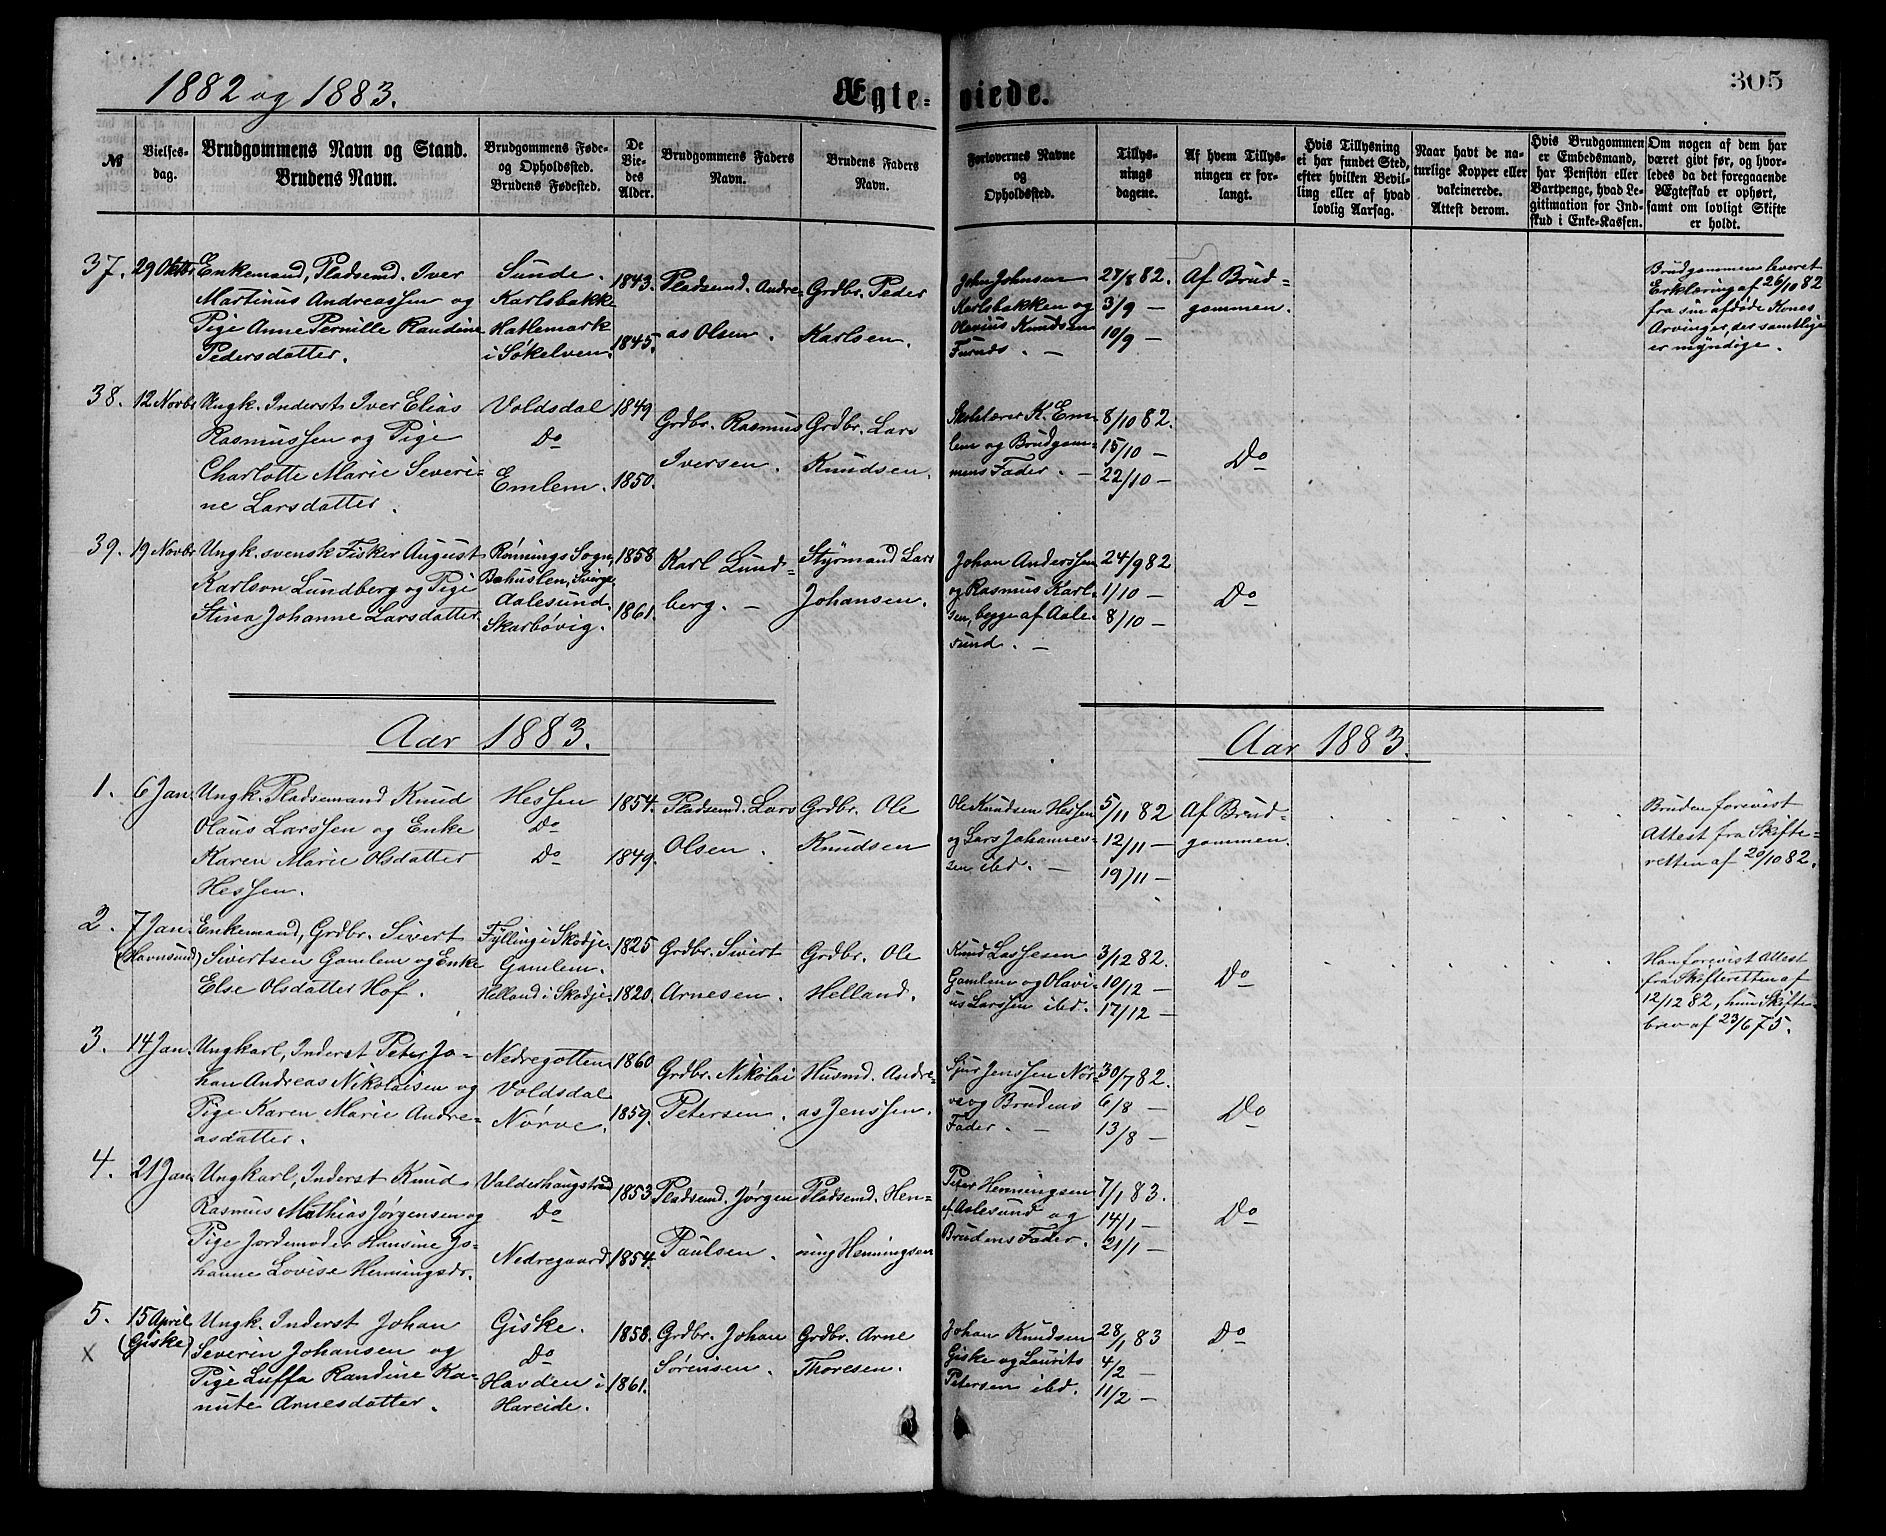 1882 og 1883.
Ægte-
viede.
305
№
Vielses-
dag.
Brudgommens Navn og Stand.
Brudens Navn.
Brudgommens Føde-
og Opholdssted.
Brudens Fødested.
De
Vie-
des
Alder.
Brudgommens Faders
Navn.
Brudens Faders
Navn.
Forlovernes Navne
og
Opholdssted.
Tillys-
nings
dagene.
Af hvem Tillys-
ningen er for-
langt.
Hvis Tillysning
ei har fundet Sted,
efter hvilken Bevil-
ling eller af hvad
lovlig Aarsag.
Naar havt de na-
turlige Kopper eller
vakcinerede.
Attest derom.
Hvis Brudgommen
er Embedsmand,
har Pension eller
Vartpenge, hvad Le-
gitimation for Ind-
skud i Enke-Kassen.
Om nogen af dem har
været gift før, og hvor-
ledes da det foregaaende
Ægteskab er ophørt,
samt om lovligt Skifte
er holdt.
37.
29 Oktbr
Enkemand, Pladsemd. Iver
Martinus Andreassen og
Pige Anne Pernille Randine
Pedersdatter.
Sunde.
Karlsbakk
Hatlemark
i Søkelven.
1843.
1845.
Pladsemd. Andre-
as Olsen.
Grdbr. Peder
Karlsen.
John Johnsen
Karlsbakken og
Olavius Knudsen
27/8 82.
3/9 —
10/9 —
Af Brud-
gommen.
Brudgommen leveret
Erklæring af 26/10 82
fra sin afdøde Kones
Arvinger, der samtlige
er myndige.
38.
12 Novbr
Ungk. Inderst Iver Elias
Rasmussen og Pige
Charlotte Marie Severi-
ne Larsdatter.
Voldsdal
Do
Emlem.
1849
1850.
Grdbr. Rasmus
Iversen.
Grdbr. Lars
Knudsen.
K. Em-
lem og Brudgom-
mens Fader. —
8/10 82.
15/10 —
22/10 —
Do
39.
19 Novbr
Ungk. svensk Fisker August
Karlson Lundberg og Pige
Stina Johanne Larsdatter
Rønnings Sogn,
Bahuslen, Sverge
Aalesund.
Skarbøvig.
1858
1861.
Karl Lund-
berg. —
Styrmand Lars
Johansen.
Johan Anderssen
og Rasmus Karl-
sen, begge af Aale-
sund. —
24/9 82
1/10 —
8/10 —
Do
Aar 1883.
Aar 1883.
1.
6 Jan.
Ungk. Pladsemand Knud
Olaus Larssen og Enke
Karen Marie Olsdatter
Hessen.
Hessen
Do
Do
1854.
1849.
Pladsemd. Lars
Olsen.
Grdbr. Ole
Knudsen
Ole Knudsen Hessen
og Lars Johannes-
sen ibd. —
5/11 82
12/11 —
19/11 —
Af Brud-
gommen.
Bruden forevist
Attest fra Skifte-
retten af 20/10 82.
2.
7 Jan.
(Havnsund)
Enkemand, Grdbr. Sivert
Sivertsen Gamlem og Enke
Else Olsdatter Hof.
Fylling i Skodje.
Gamlem.
Helland i Skodje.
1825
1820.
Grdbr. Sivert
Arnesen.
Grdbr. Ole
Helland.
Knud Lassesen
Gamlem og Olavi-
us Larssen ibd.
3/12 82.
10/12 —
17/12 —
Do
Han forevist Attest
fra Skifteretten af
12/12 82, hun Skifte-
brev af 23/6 75.
3.
14 Jan.
Ungkarl, Inderst Peter Jo-
han Andreas Nikolaisen og
Pige Karen Marie Andre-
asdatter.
Nedregotten
Voldsdal
Nørve.
1860
1859.
Grdbr. Nikolai
Petersen.
Husmd. Andre-
as Jenssen.
Sjur Jenssen Nør-
ve og Brudens
Fader. —
30/7 82.
6/8 —
13/8 —
Do
4.
21 Jan.
Ungkarl, Inderst Knud
Rasmus Mathias Jørgensen og
Pige Jordemoder Hansine Jo-
hanne Lovise Henningsdr.
Valderhaugstrand
Do
Nedregaard
1853
1854.
Pladsemd. Jørgen
Paulsen.
Pladsemd. Hen-
ning Henningsen
Peter Henningsen
af Aalesund og
Brudens Fader.
7/1 83.
14/1 —
21/1 —
Do
5.
X
15 April
(Giske)
Ungk. Inderst Johan
Severin Johansen og
Pige Luffa Randine Ka-
nute Arnesdatter.
Giske.
Do
Havden i
Hareide.
1858.
1861.
Grdbr. Johan
Sørensen.
Grdbr. Arne
Thoresen.
Johan Knudsen
Giske og Laurits
Petersen ibd.
28/1 83
4/2 —
11/2 —
Do